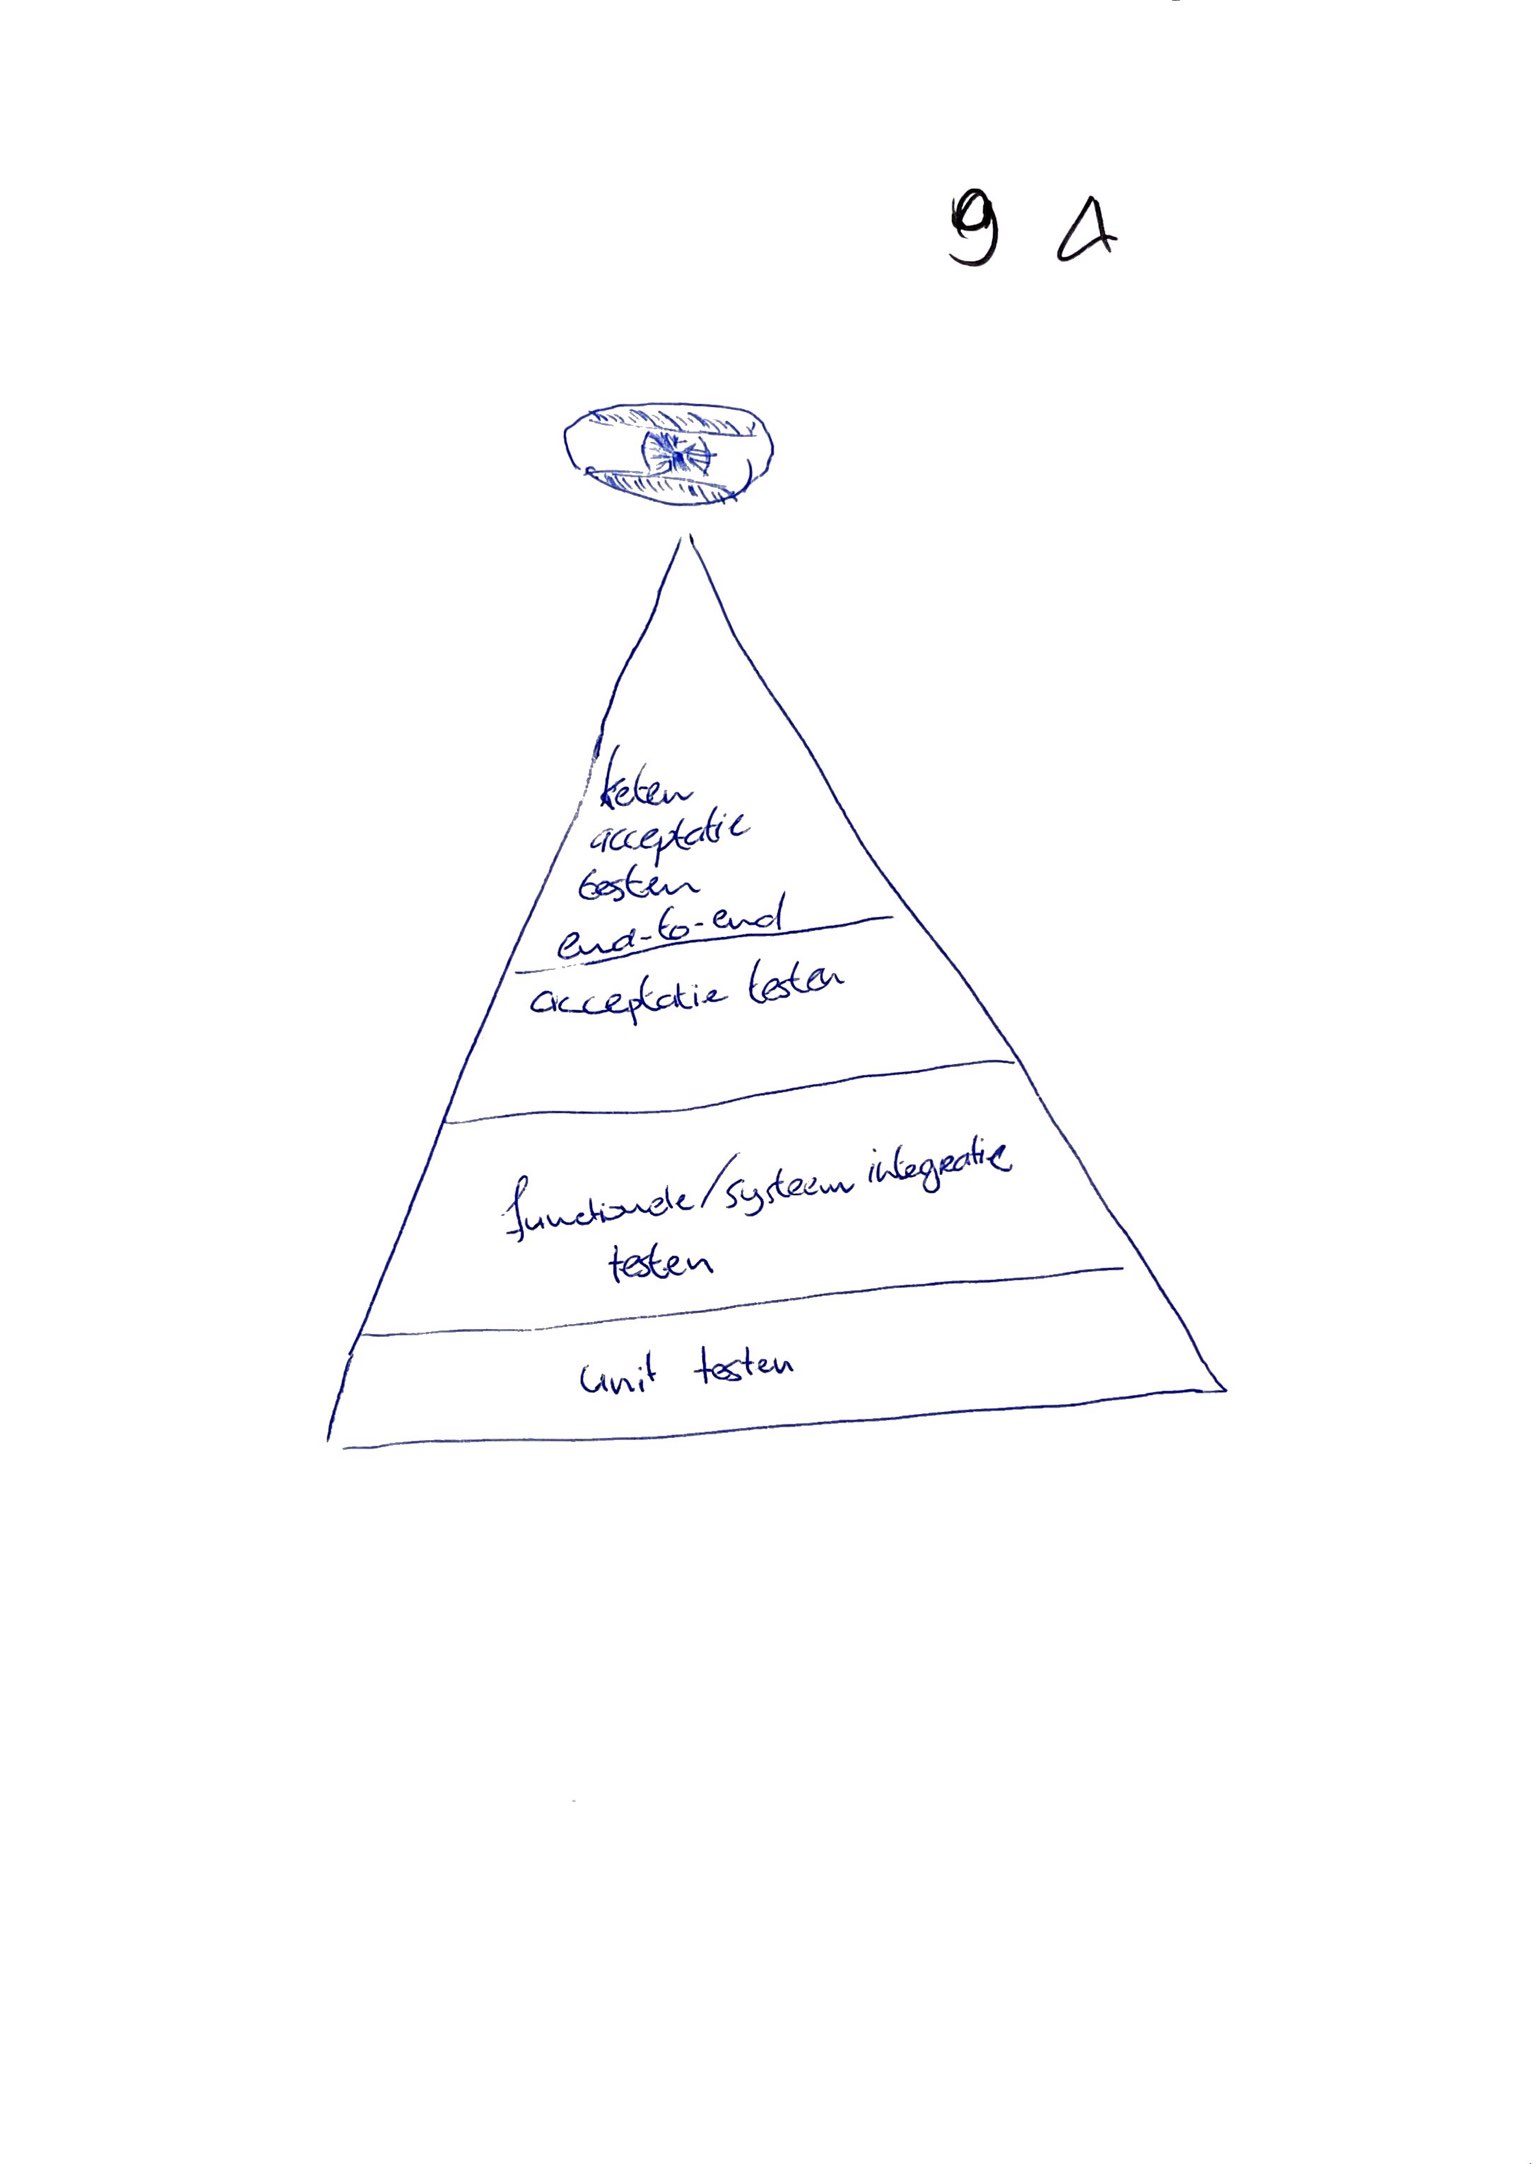 9 A
keten
acceptatie
testen
end-to-end
acceptatie testen
functionele/systeem integratie
testen
unit testen